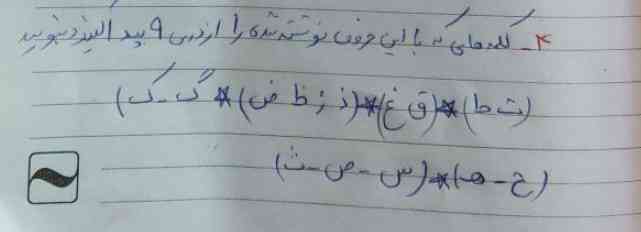 ۴- کلمه‌هایی که با این حروف نوشته شده را از درس ۹ پیدا کنید و بنویسید
(ت ط)*(ق غ)*(ذ ز ظ ض)*(گ-ک)
(ح-هـ)*(س-ص-ث)